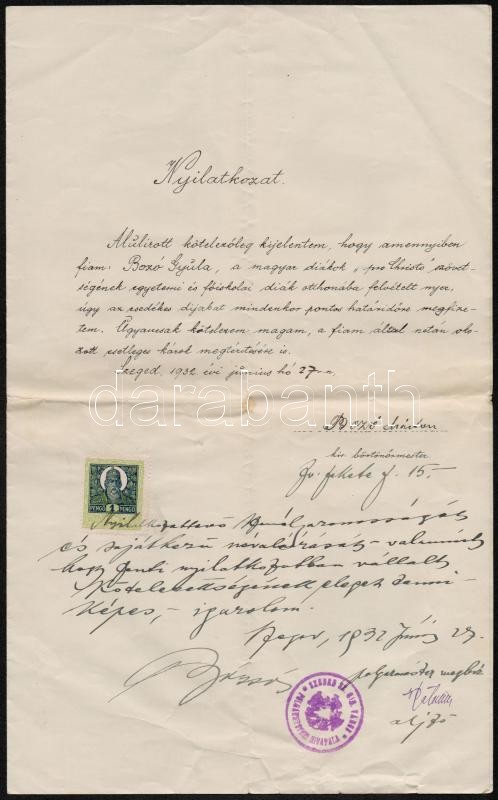 Nyilatkozat.
Alulirott kötelezőleg kijelentem, hogy amennyiben
fiam: Bozó Gyula, a magyar diákok "pro Christo" szövet-
ségének egyetemi és főiskolai diák otthonába felvételt nyer,
úgy az esedékes dijakat mindenkor pontos határidőre megfize-
tem. Ugyancsak kötelezem magam, a fiam által netán oko-
zott esetleges károk megtéritésére is.
Szeged 1932 évi junius hó 27-n.
darabanth
Bozó
kir. börtönőrmester
fekete 15.
PENGŐ 1 PENGŐ
Nyilatkozattevő
és sajátkezű névaláirását valamint
hogy fenti nyilatkozatban vállalt
kötelezettségének eleget tenni
képes, - igazolom.
Szeged, 1932
polgármester megbiz.
SZEGED SZ. KIR. VÁROS POLGÁRMESTERI HIVATALA
aljző